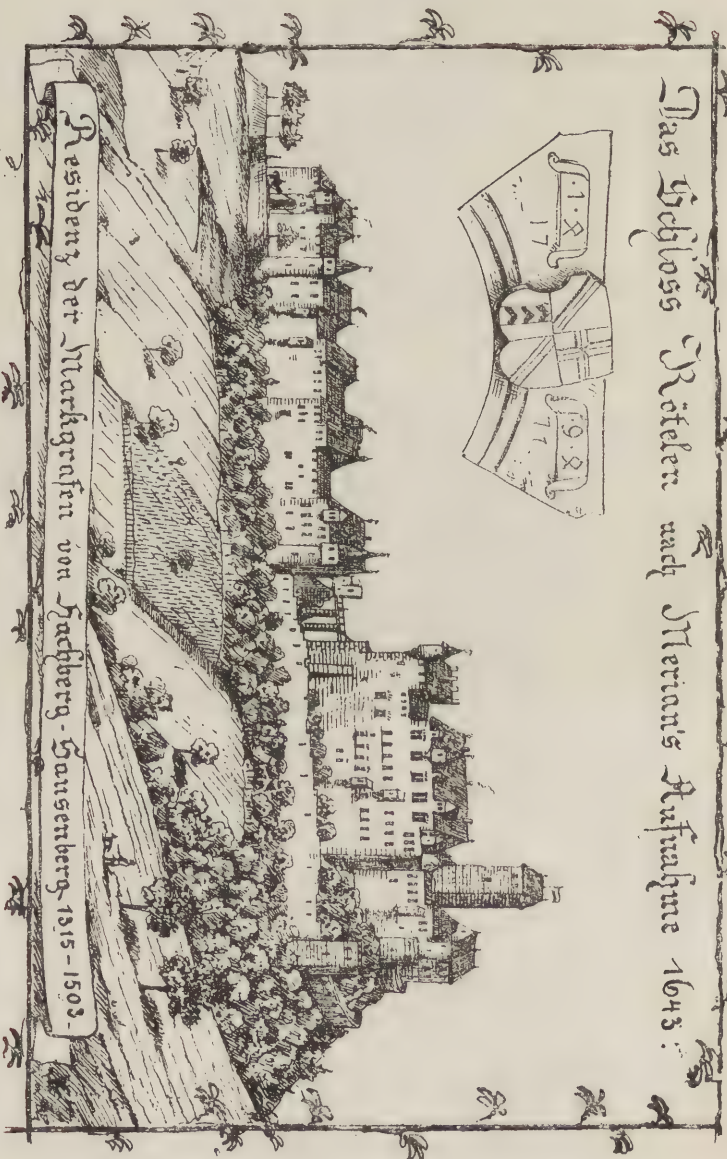 Das Schloss Rötelen nach Merian's Aufnahme 1643:
·1·4 94
17 71
Residenz der Markgrafen von Hachberg-Sausenberg 1315-1503-